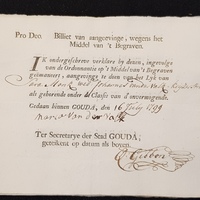 Pro Deo. Billiet van aangeevinge, wegens het
Middel van 't Begraven.
IK ondergeschreven verklare by dezen, ingevolge
van de Ordonnantie op 't Middel van 't Begraven
geëmaneert, aangevinge te doen van het Lyk van
als gehorende onder de Classe van d' onvermogende.
Gedaan binnen GOUDA, den 16 July 1799
Ter Secretarye der Stad GOUDA,
getekent op datum als boven.